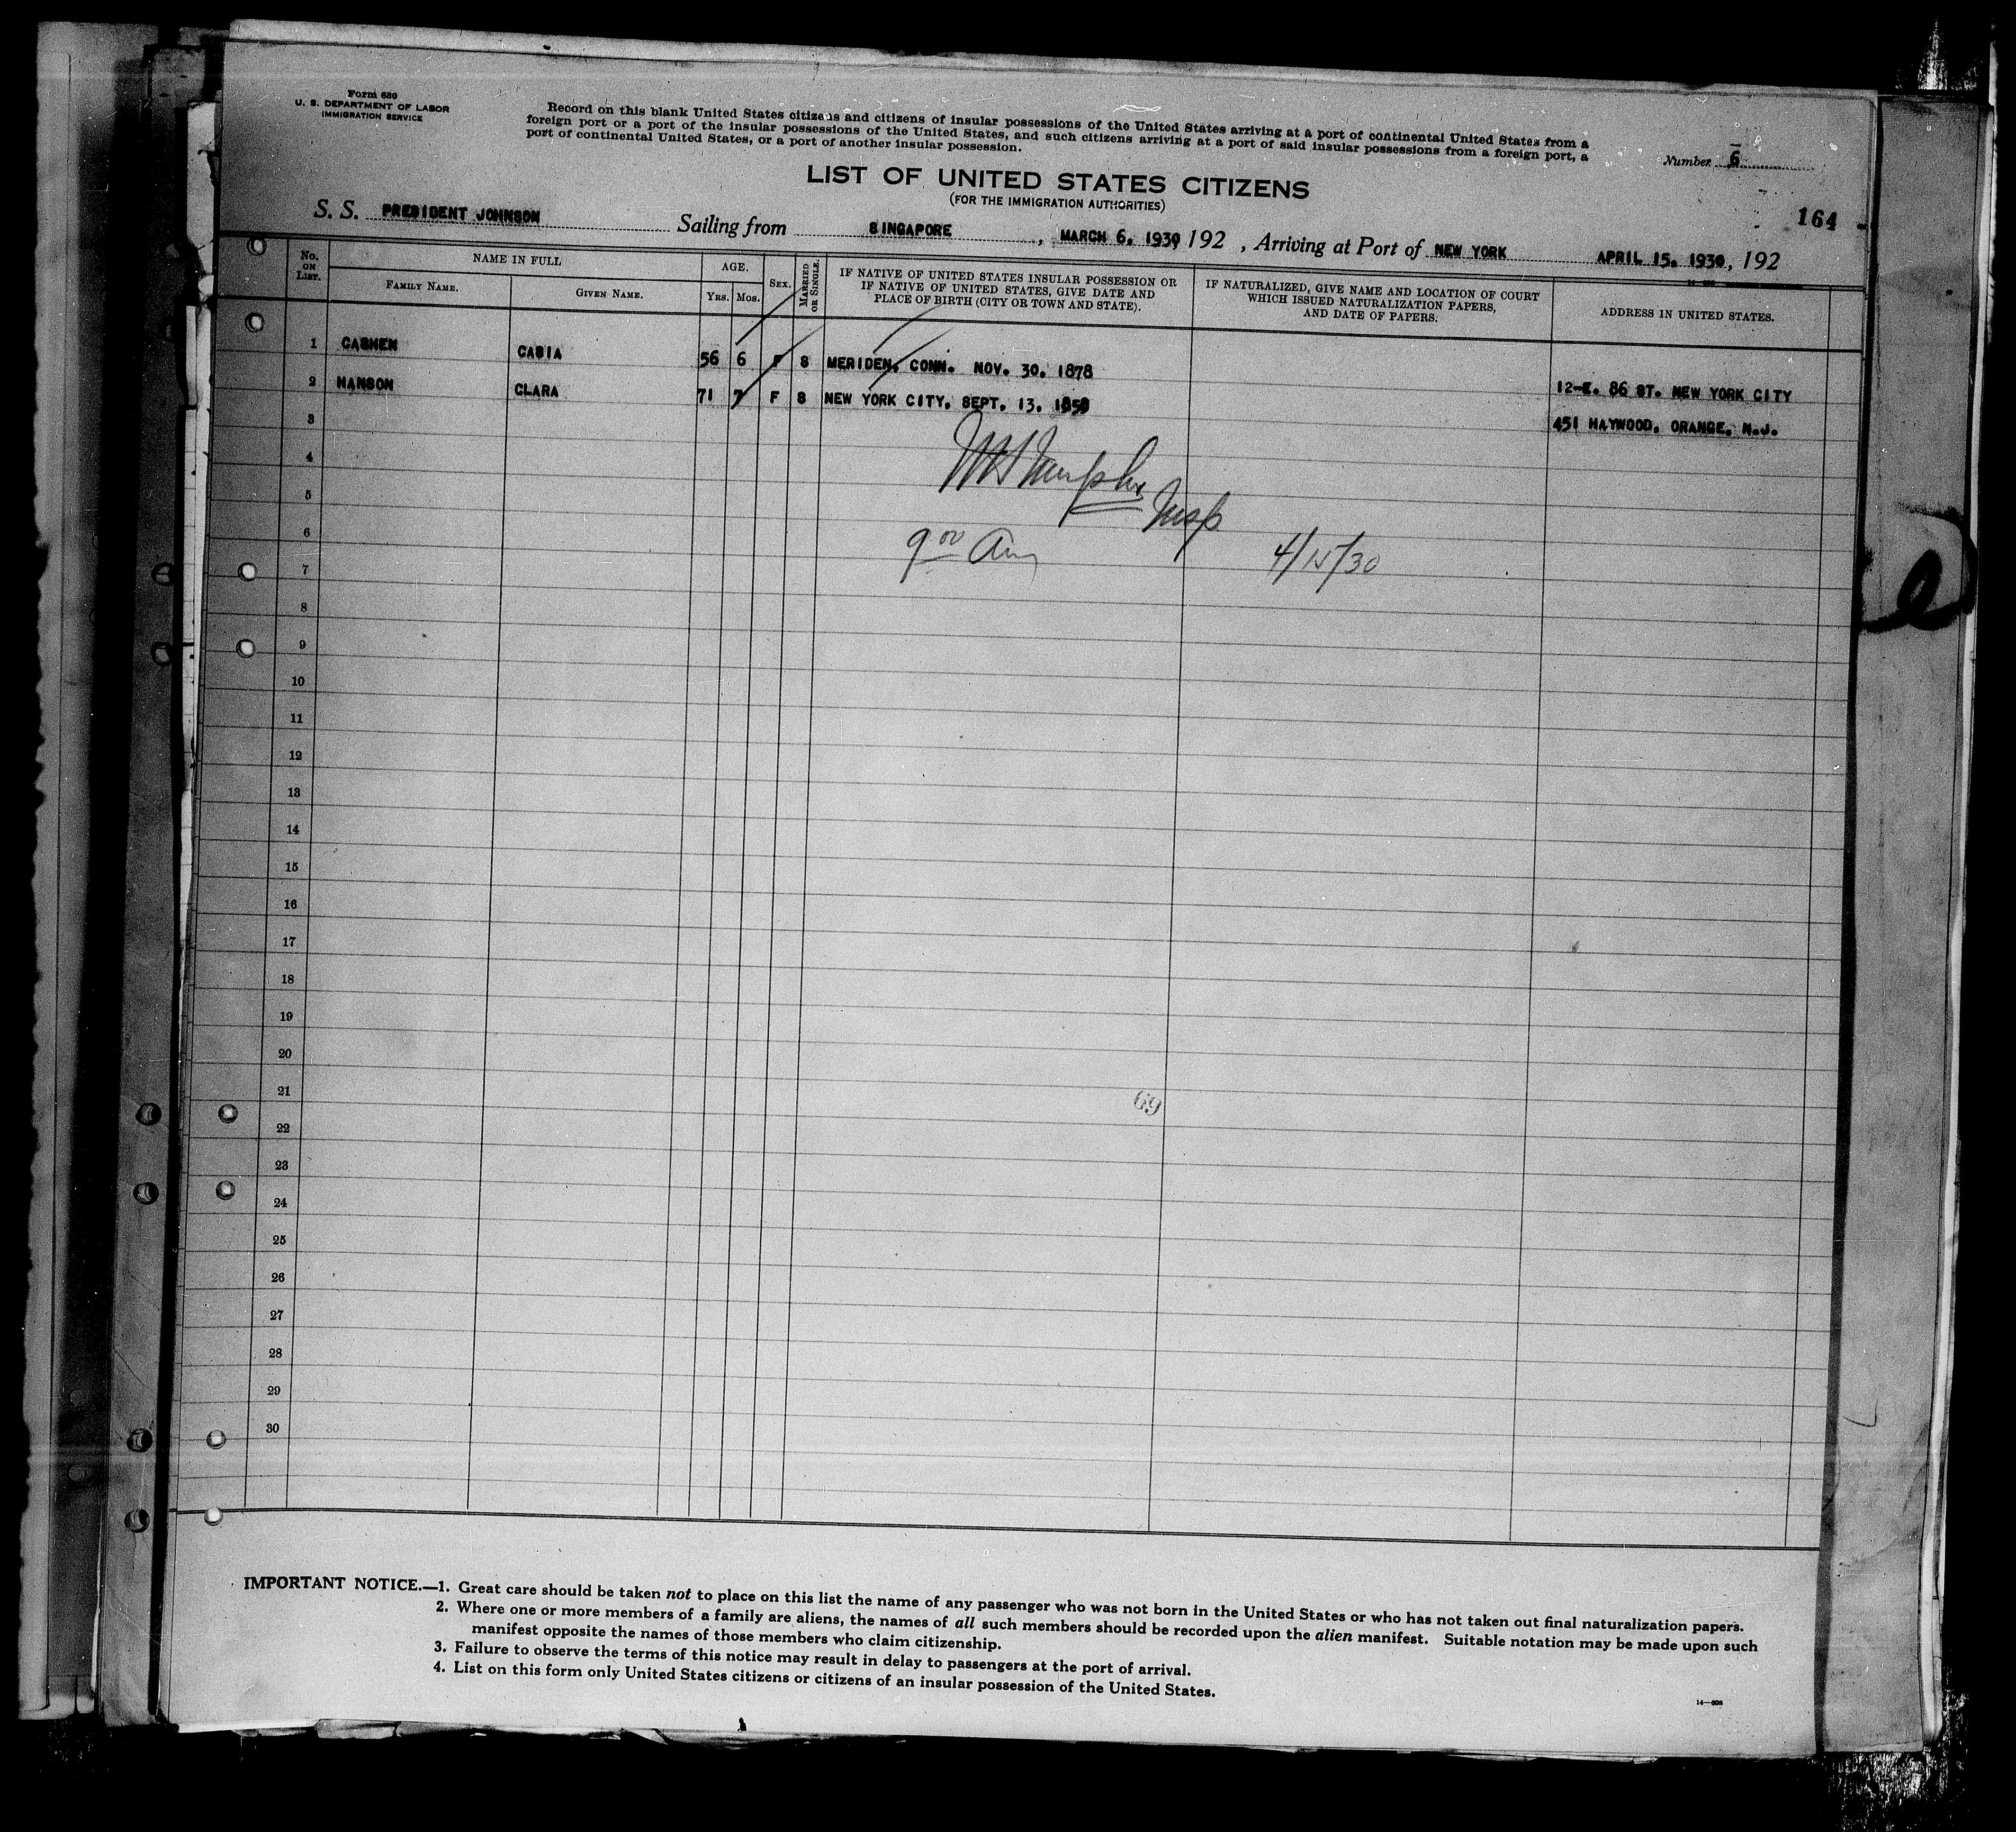 Form 630
U. S. DEPARTMENT OF LABOR
IMMIGRATION SERVICE
Record on this blank United States citizens and citizens of insular possessions of the United States arriving at a port of continental United States from a
foreign port or a port of the insular possessions of the United States, and such citizens arriving at a port of said insular possessions from a foreign port, a
port of continental United States, or a port of another insular possession.
Number 6
LIST OF UNITED STATES CITIZENS
(FOR THE IMMIGRATION AUTHORITIES)
164
S. S. PRESIDENT JOHNSON Sailing from SINGAPORE, MARCH 6, 1930 192 , Arriving at Port of NEW YORK APRIL 15, 1930, 192
No. ON LIST. NAME IN FULL AGE. SEX. MARRIED OR SINGLE. IF NATIVE OF UNITED STATES INSULAR POSSESSION OR IF NATIVE OF UNITED STATES, GIVE DATE AND PLACE OF BIRTH (CITY OR TOWN AND STATE). IF NATURALIZED, GIVE NAME AND LOCATION OF COURT WHICH ISSUED NATURALIZATION PAPERS, AND DATE OF PAPERS. ADDRESS IN UNITED STATES.
FAMILY NAME. GIVEN NAME. YRS. MOS.
1 CASHEN CASIA 56 6 F S MERIDEN, CONN. NOV. 30. 1878 12-E. 86 ST. NEW YORK CITY
2 HANSON CLARA 71 7 F S NEW YORK CITY, SEPT. 13. 1858 451 HAYWOOD, ORANGE, N.J.
3
4
Murphy Insp
5
6
9 00 Am 4/15/30
7
8
9
10
11
12
13
14
15
16
17
18
19
20
21
69
22
23
24
25
26
27
28
29
30
IMPORTANT NOTICE.—1. Great care should be taken not to place on this list the name of any passenger who was not born in the United States or who has not taken out final naturalization papers.
2. Where one or more members of a family are aliens, the names of all such members should be recorded upon the alien manifest. Suitable notation may be made upon such
manifest opposite the names of those members who claim citizenship.
3. Failure to observe the terms of this notice may result in delay to passengers at the port of arrival.
4. List on this form only United States citizens or citizens of an insular possession of the United States.
14—608